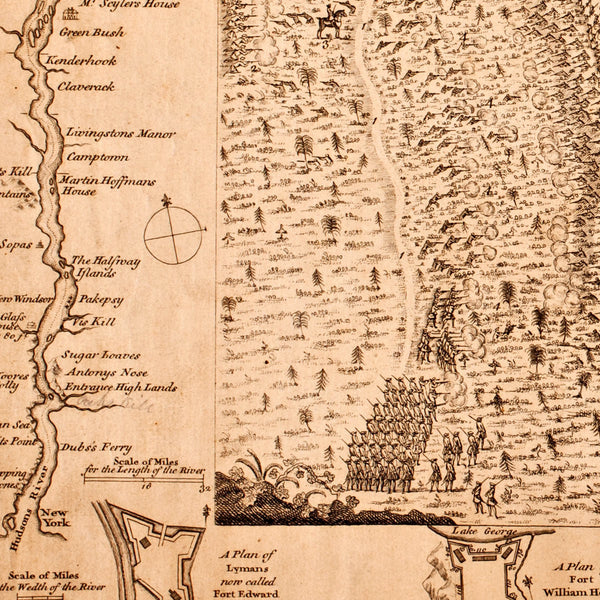 Mr Scylers House
Green Bush
Kenderhook
Claverack
Livingstons Manor
Camptown
s Kill
Martin Hoffmans
House
ntains
Sopas
The Halfway
Islands
ew Windsor
Pakepsy
Glass
ouse
Vis Kill
80 f
Sugar Loaves
Antonys Nose
oores
olly
Entrance High Lands
an Sea
ts Point
Dubs's Ferry
Scale of Miles
for the Length of the River
16
32
pping
ones
Hudsons River
New
York
Scale of Miles
the Wedth of the River
A Plan of
Lymans
now called
Fort Edward
Lake George
A Plan
Fort
William He
3
2
1
1